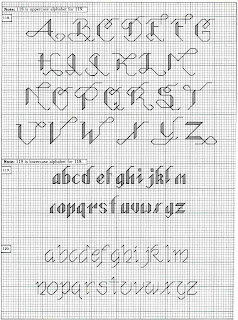 Note: 118 is uppercase alphabet for 119.
118
A B C D E F G
H I J K L M
N O P Q R S T
U V W X Y Z
Note: 119 is lowercase alphabet for 118.
119
abcdefghijklm
nopqrstuvwxyz
120
abcdefghijklm
nopqrstuvwxyz